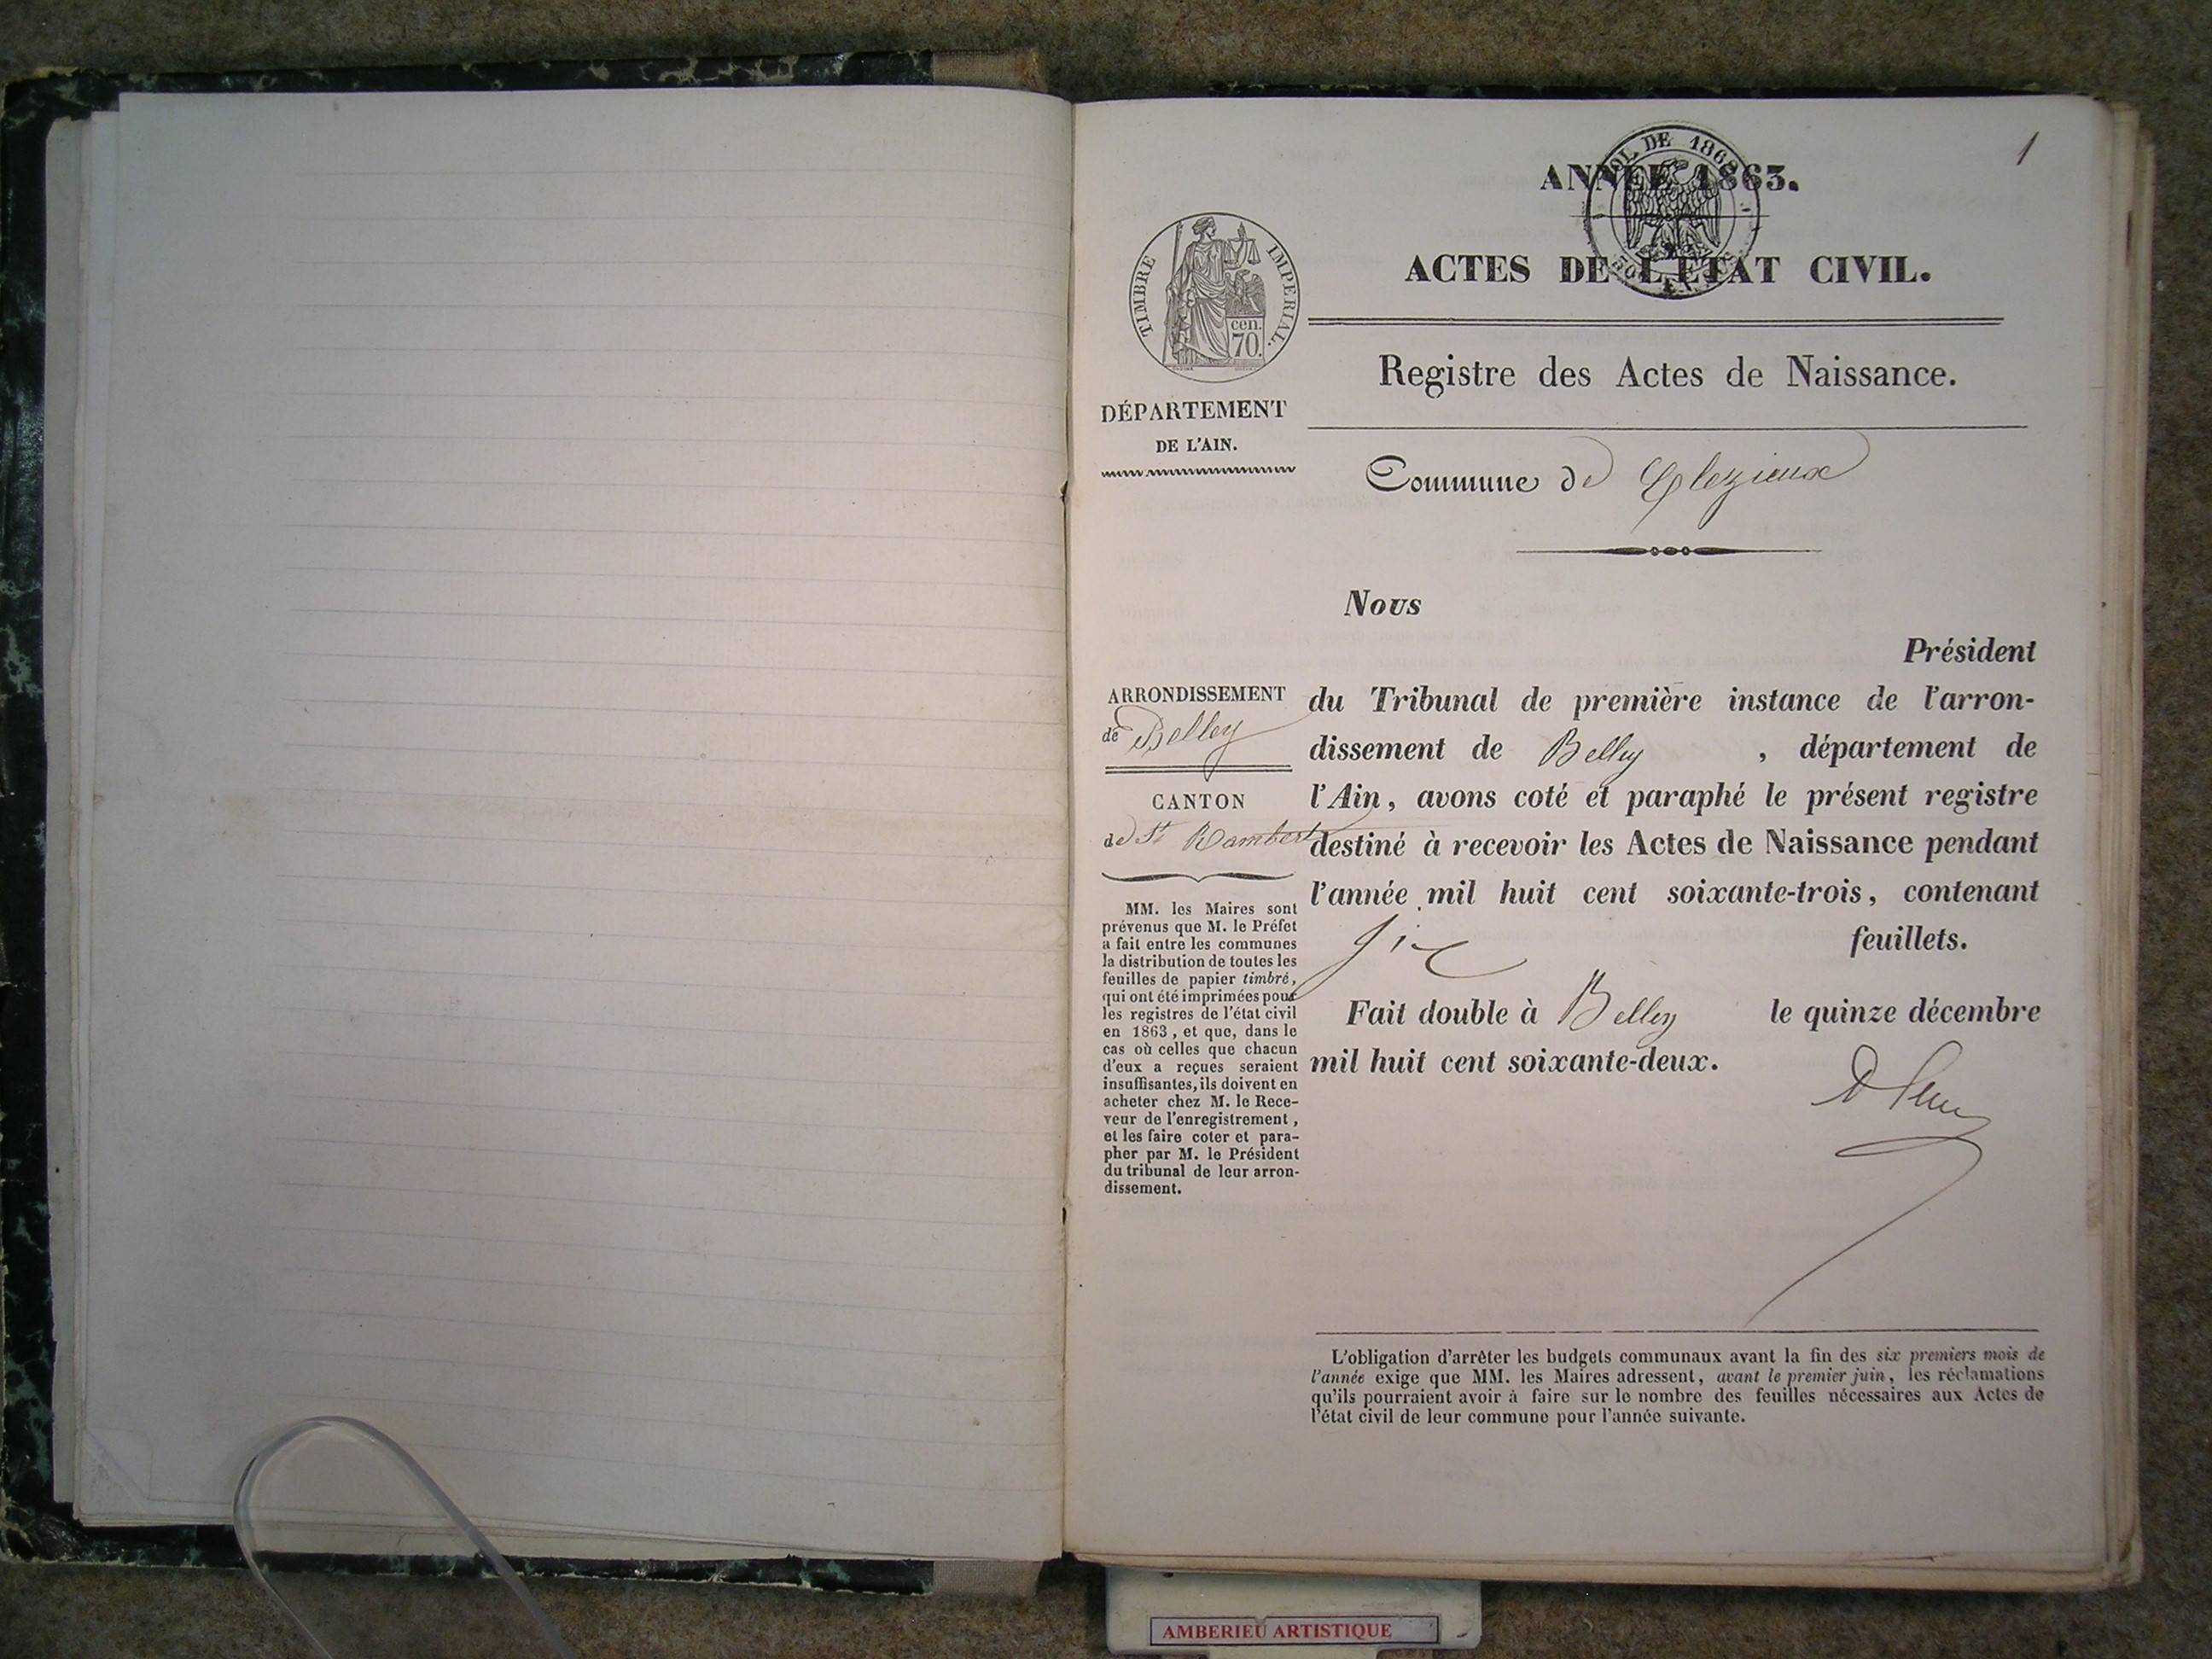 1
POL. DE 1862
ANNÉE 1863.
TIMBRE IMPERIAL.
cen.
70.
ACTES DE L'ÉTAT CIVIL.
Registre des Actes de Naissance.
DÉPARTEMENT
DE L'AIN.
Commune de Clezieux
Nous
Président
ARRONDISSEMENT
de Belley
CANTON
de St Rambert
du Tribunal de première instance de l'arron-
dissement de Belley , département de
l'Ain, avons coté et paraphé le présent registre
destiné à recevoir les Actes de Naissance pendant
l'année mil huit cent soixante-trois, contenant
six feuillets.
Fait double à Belley le quinze décembre
mil huit cent soixante-deux.
MM. les Maires sont
prévenus que M. le Préfet
a fait entre les communes
la distribution de toutes les
feuilles de papier timbré,
qui ont été imprimées pour
les registres de l'état civil
en 1863, et que, dans le
cas où celles que chacun
d'eux a reçues seraient
insuffisantes, ils doivent en
acheter chez M. le Rece-
veur de l'enregistrement,
et les faire coter et para-
pher par M. le Président
du tribunal de leur arron-
dissement.
L'obligation d'arrêter les budgets communaux avant la fin des six premiers mois de
l'année exige que MM. les Maires adressent, avant le premier juin, les réclamations
qu'ils pourraient avoir à faire sur le nombre des feuilles nécessaires aux Actes de
l'état civil de leur commune pour l'année suivante.
AMBERIEU ARTISTIQUE